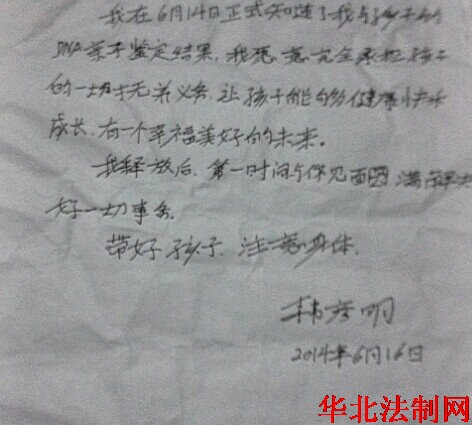 我在6月14日正式知道了我与孩子的
DNA亲子鉴定结果,我愿意完全承担孩子
的一切抚养义务,让孩子能够健康快乐
成长,有一个幸福美好的未来。
我释放后,第一时间与你见面圆满
好一切事务。
带好孩子,注意身体。
韩
明
2014年6月16日
华北法制网